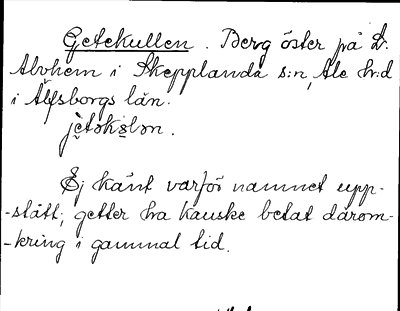 Getekullen. Berg öster på L.
Alvhem i Skepplanda s:n, Ale h:d
i Älfsborgs län.
jètəkɷlən.
Ej känt varför namnet upp-
-stått; getter ha kanske betat därom-
-kring i gammal tid.